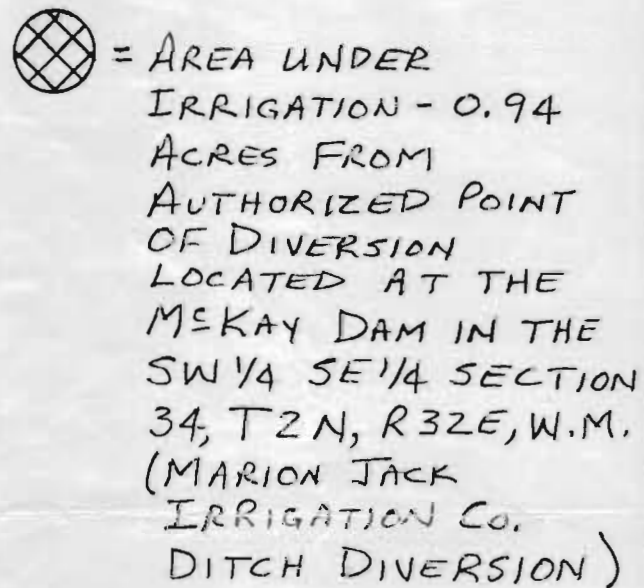 = AREA UNDER
IRRIGATION - 0.94
ACRES FROM
AUTHORIZED POINT
OF DIVERSION
LOCATED AT THE
McKAY DAM IN THE
SW 1/4 SE 1/4 SECTION
34, T2N, R32E, W.M.
(MARION JACK
IRRIGATION CO.
DITCH DIVERSION)